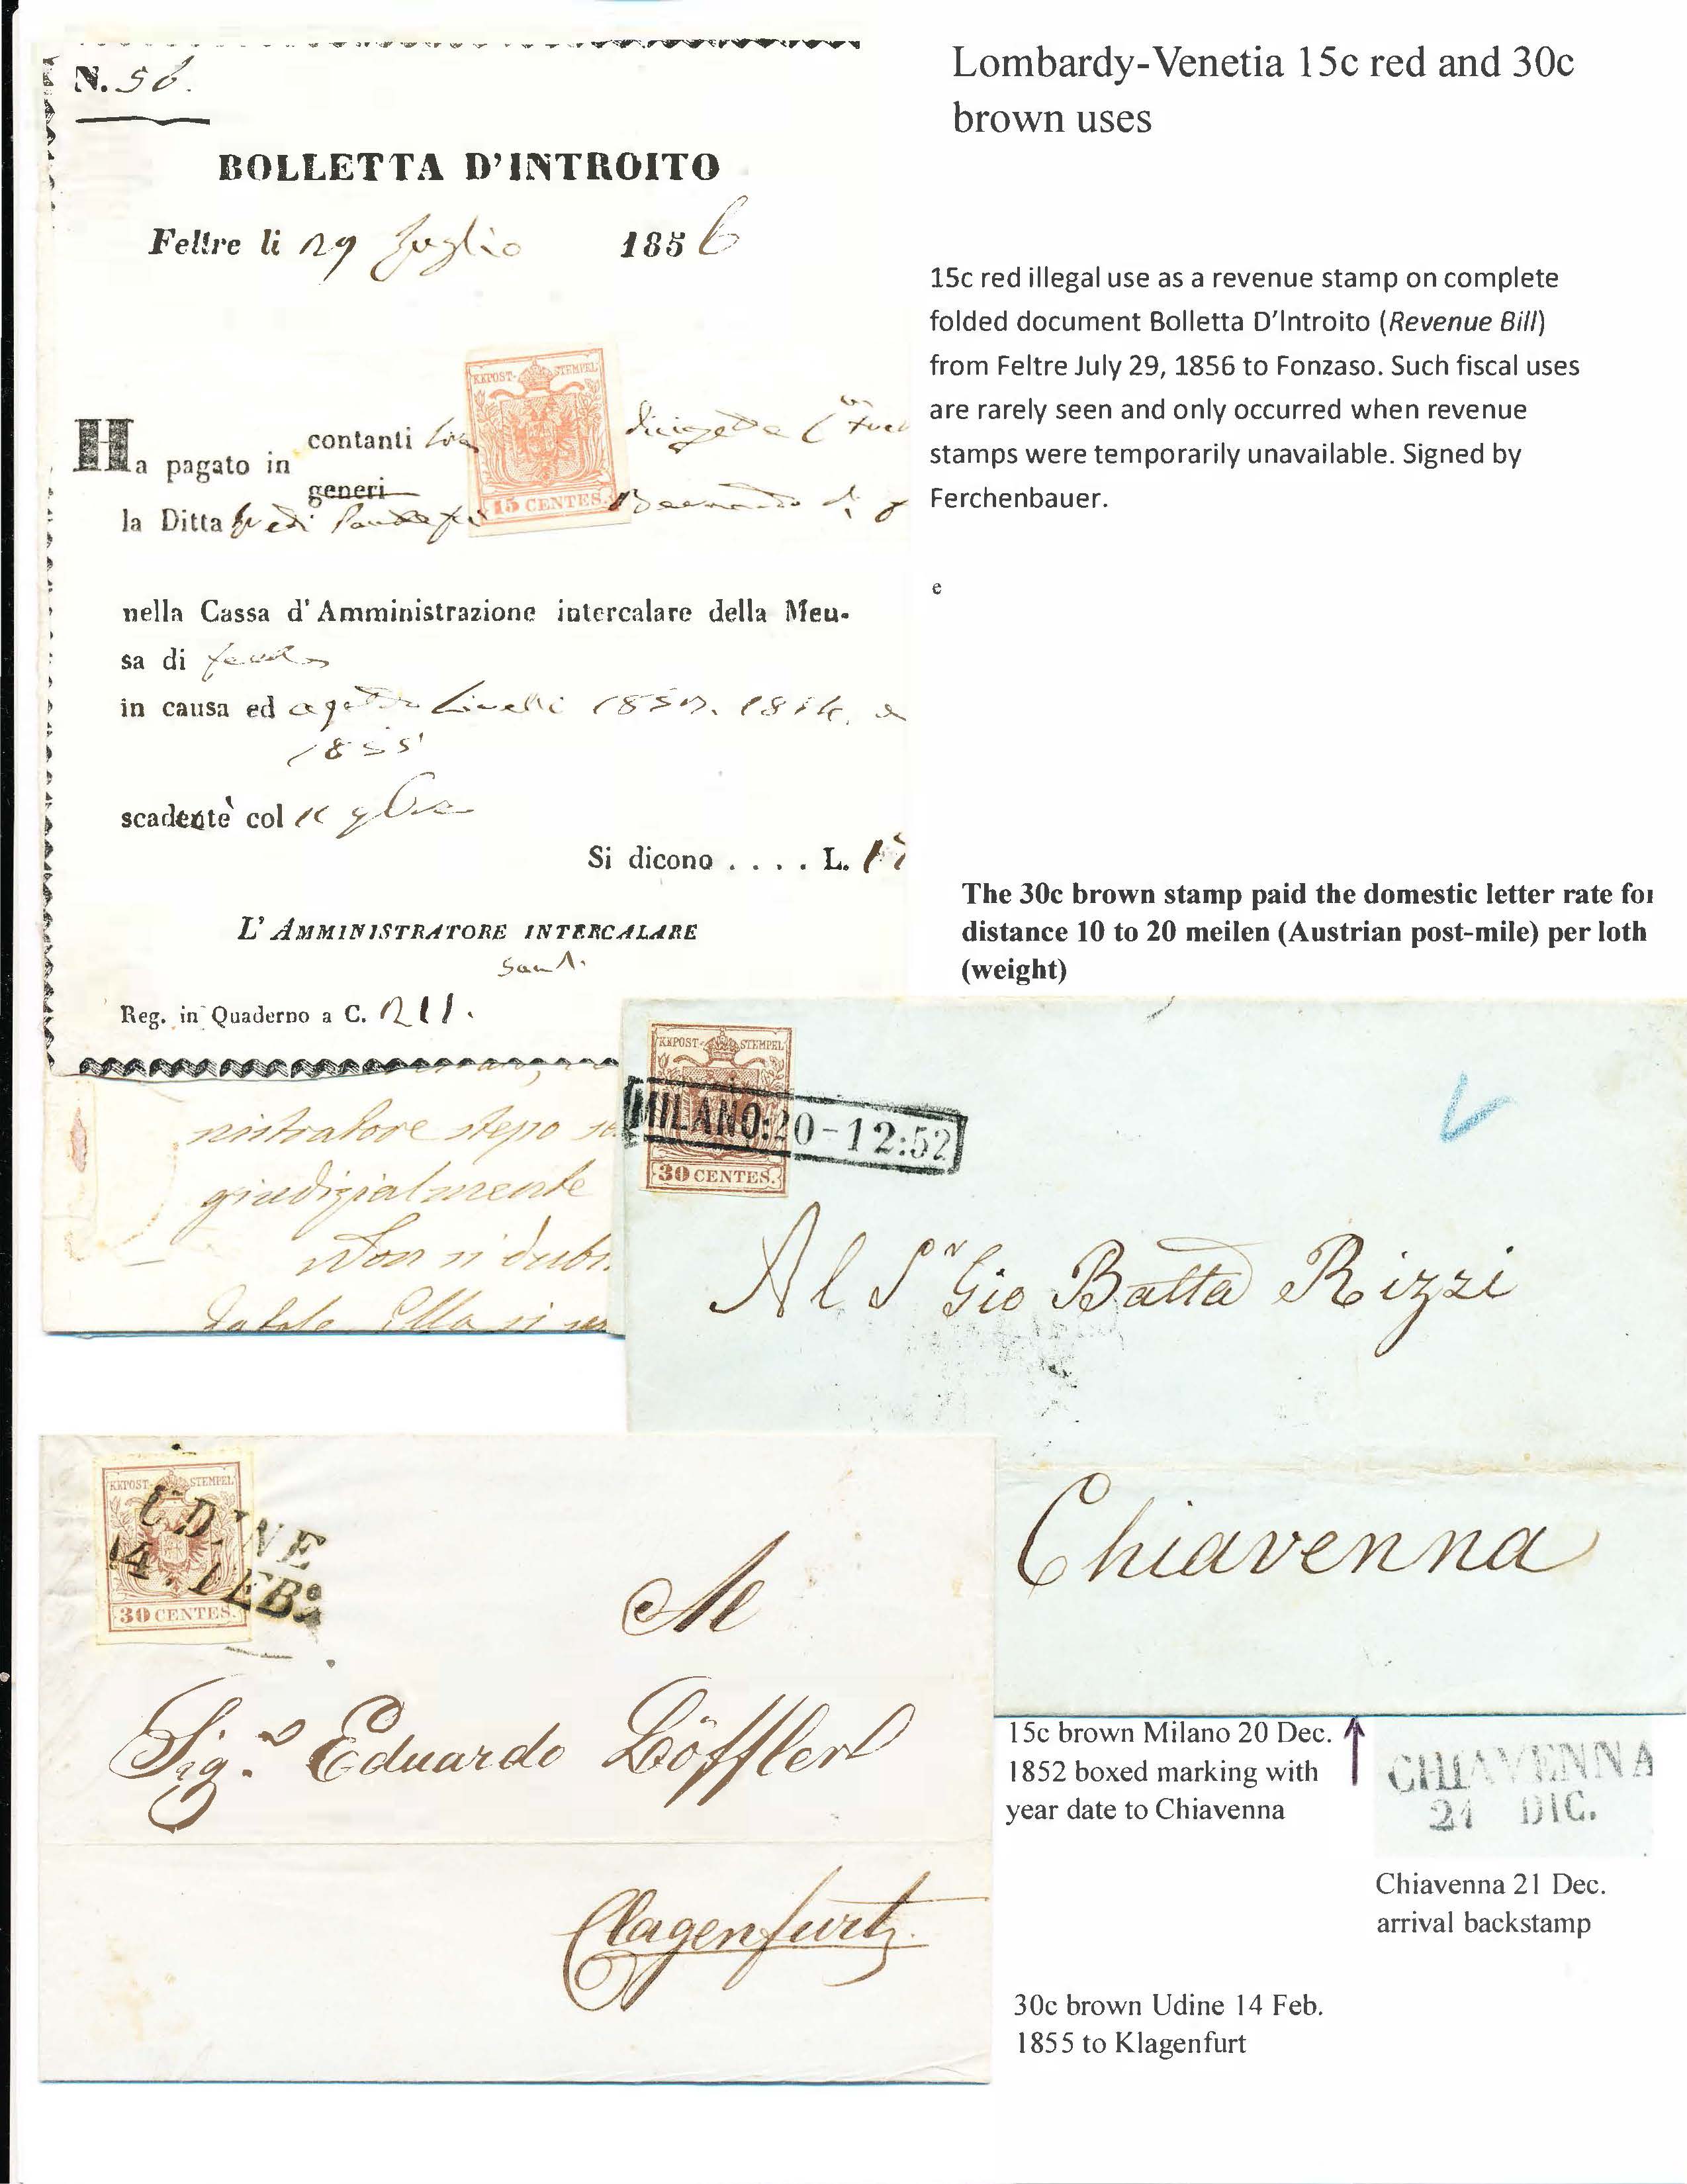 Lombardy-Venetia 15c red and 30c
brown uses
N. 56.
BOLLETTA D'INTROITO
Feltre li 29 Luglio 1856
15c red illegal use as a revenue stamp on complete
folded document Bolletta D'Introito (Revenue Bill)
from Feltre July 29, 1856 to Fonzaso. Such fiscal uses
are rarely seen and only occurred when revenue
stamps were temporarily unavailable. Signed by
Ferchenbauer.
e
KKPOST-STEMPEL
15 CENTES.
Ha pagato in contanti
generi
la Ditta
nella Cassa d'Amministrazione intercalare della Meu-
sa di
in causa ed
1855
scadente col
Si dicono . . . . L.
L'AMMINISTRATORE INTERCALARE
Reg. in Quaderno a C. 211.
nistratore stepo
giudizialmente
Non si dubi
Ella si
The 30c brown stamp paid the domestic letter rate for
distance 10 to 20 meilen (Austrian post-mile) per loth
(weight)
KKPOST-STEMPEL
30 CENTES.
MILANO:20-12:52
Al Sr Gio Batta Rizzi
Chiavenna
KKPOST-STEMPEL
30 CENTES.
UDINE
14. FEBO
Al
Sigr Eduardo Löffler
Clagenfurt
15c brown Milano 20 Dec.
1852 boxed marking with
year date to Chiavenna
CHIAVENNA
21 DIC.
Chiavenna 21 Dec.
arrival backstamp
30c brown Udine 14 Feb.
1855 to Klagenfurt